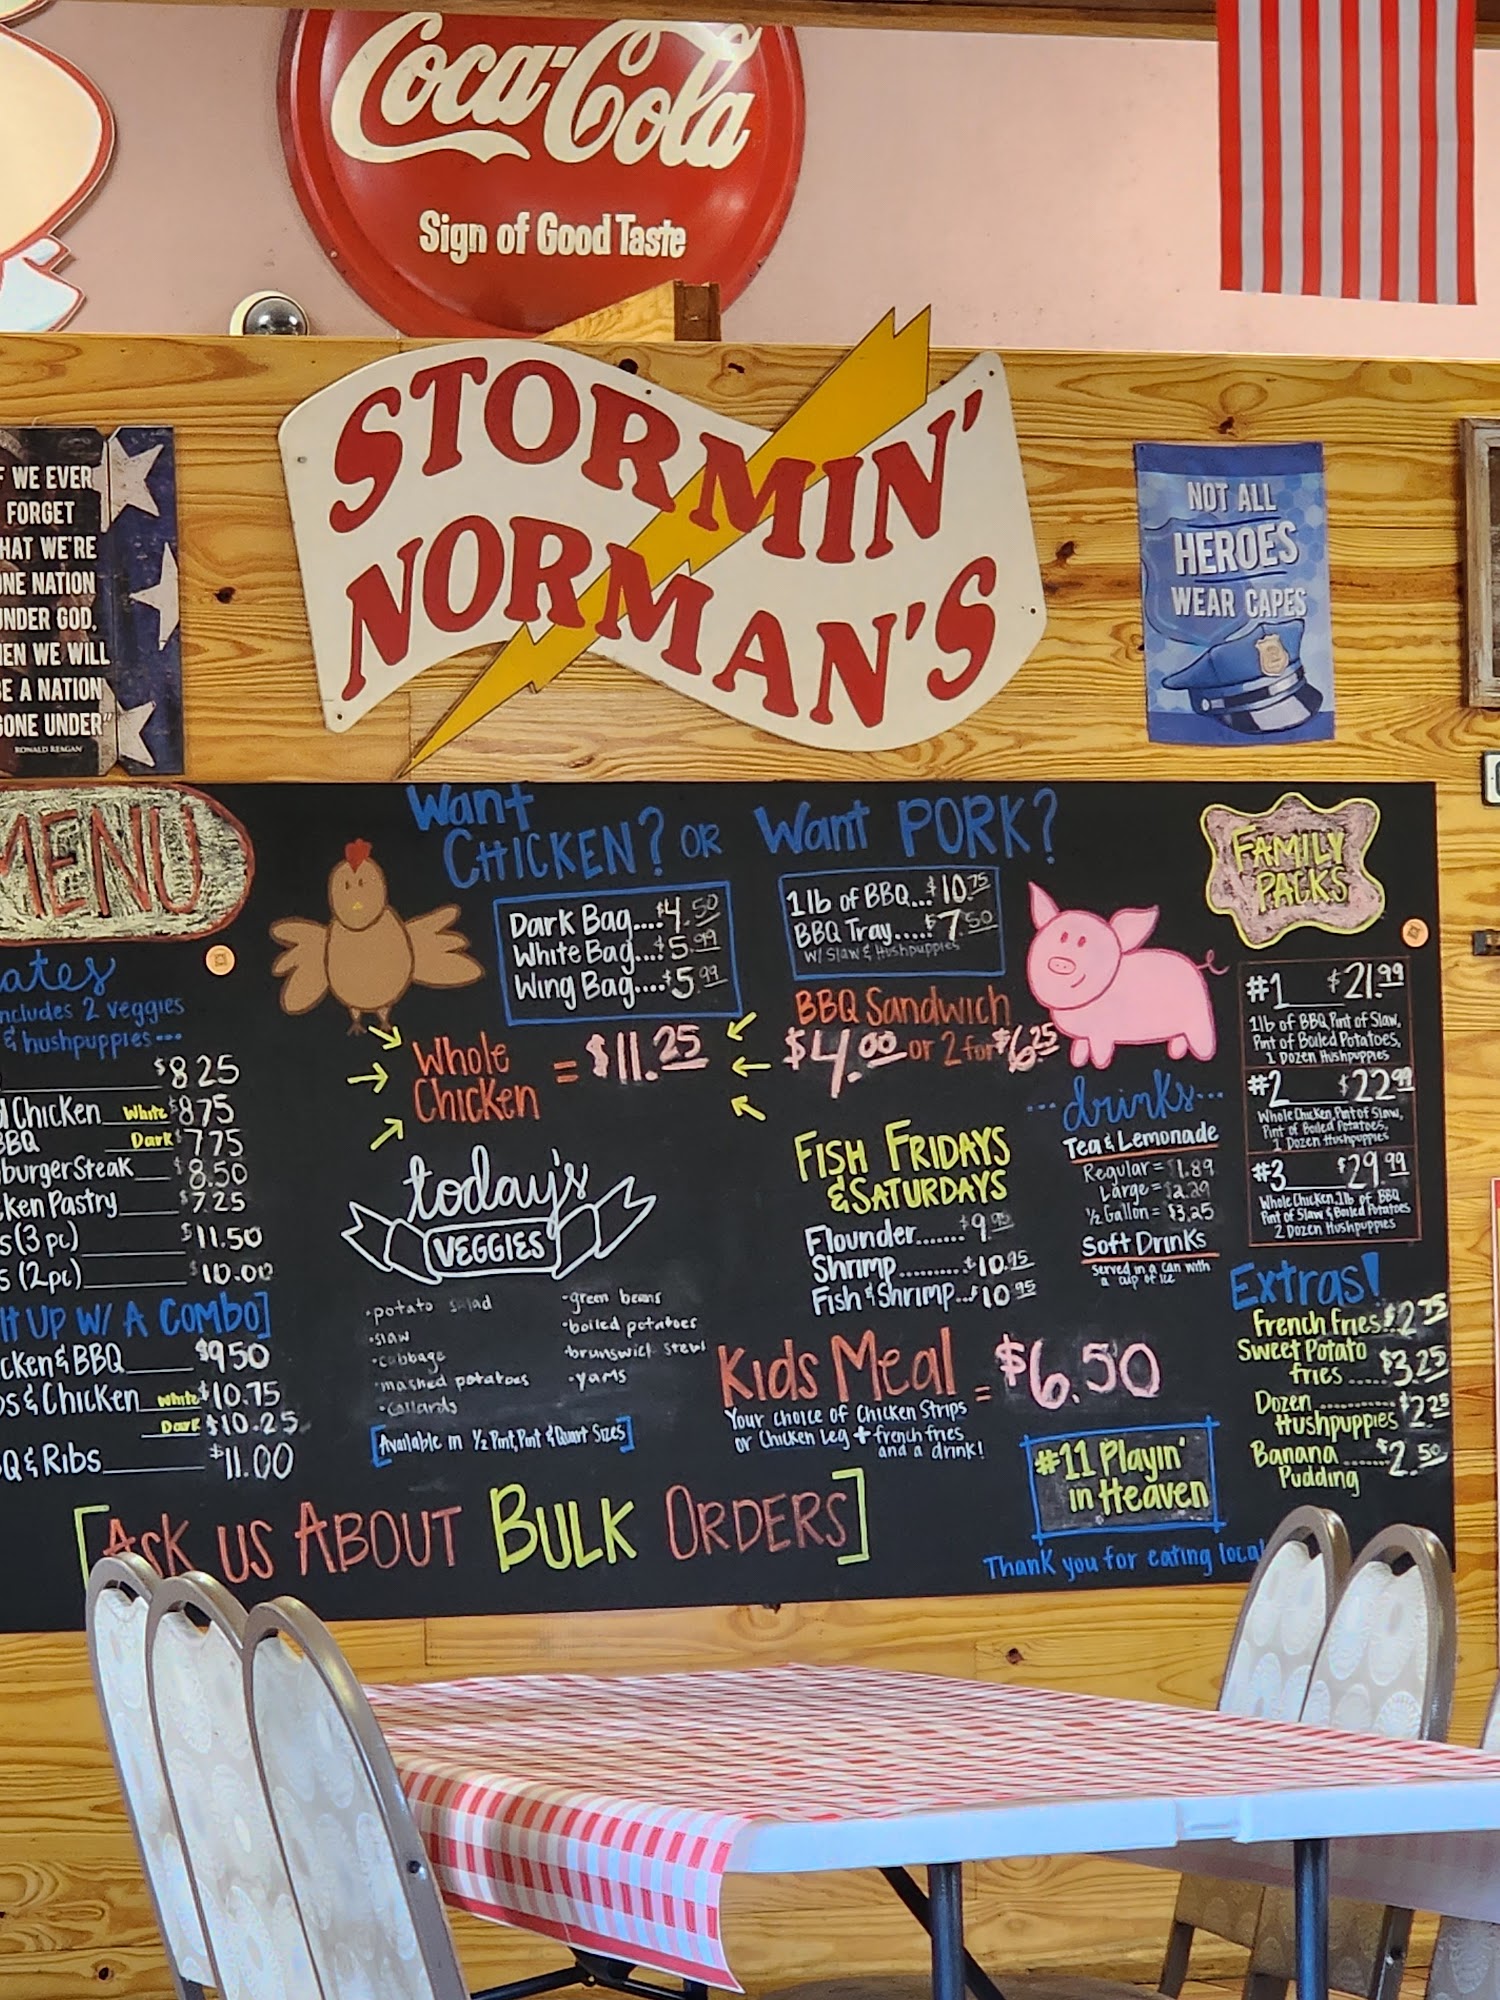 Coca-Cola
Sign of Good Taste
STORMIN'
NORMAN'S
WE EVER
FORGET
HAT WE'RE
NE NATION
NDER GOD,
EN WE WILL
E A NATION
GONE UNDER"
RONALD REAGAN
NOT ALL
HEROES
WEAR CAPES
MENU
ates
ncludes 2 veggies
& hushpuppies...
$8 25
Chicken White $8 75
BBQ Dark $7 75
burger Steak $8.50
ken Pastry $7.25
s (3 pc) $11.50
s (2pc) $10.00
It Up w/ A Combo]
cken & BBQ $9 50
s & Chicken White $10.75
Dark $10.25
Q & Ribs $11.00
Want
Chicken? or Want PORK?
Dark Bag....$4.50
White Bag...$5.99
Wing Bag....$5.99
Whole
Chicken = $11.25
1 lb of BBQ...$10.75
BBQ Tray....$7.50
w/ Slaw & Hushpuppies
BBQ Sandwich
$4.00 or 2 for $6.25
today's
VEGGIES
•potato salad
•slaw
•cabbage
•mashed potatoes
•collards
•green beans
•boiled potatoes
•brunswick stew
•yams
[Available in ½ Pint, Pint & Quart Sizes]
Fish Fridays
& Saturdays
Flounder.......$9.95
Shrimp.........$10.95
Fish & Shrimp...$10.95
...drinks...
Tea & Lemonade
Regular = $1.89
Large = $2.29
½ Gallon = $3.25
Soft Drinks
Served in a can with
a cup of ice
Kids Meal = $6.50
Your choice of Chicken Strips
or Chicken Leg + french fries
and a drink!
FAMILY
PACKS
#1 $21.99
1 lb of BBQ Pint of Slaw,
Pint of Boiled Potatoes,
1 Dozen Hushpuppies
#2 $22.99
Whole Chicken, Pint of Slaw,
Pint of Boiled Potatoes,
1 Dozen Hushpuppies
#3 $29.99
Whole Chicken, 1 lb of BBQ
Pint of Slaw & Boiled Potatoes
2 Dozen Hushpuppies
Extras!
French Fries.$2.75
Sweet Potato
fries.....$3.25
Dozen ............$2.25
Hushpuppies
Banana ......$2.50
Pudding
#11 Playin'
in Heaven
[Ask us About Bulk Orders]
Thank you for eating local